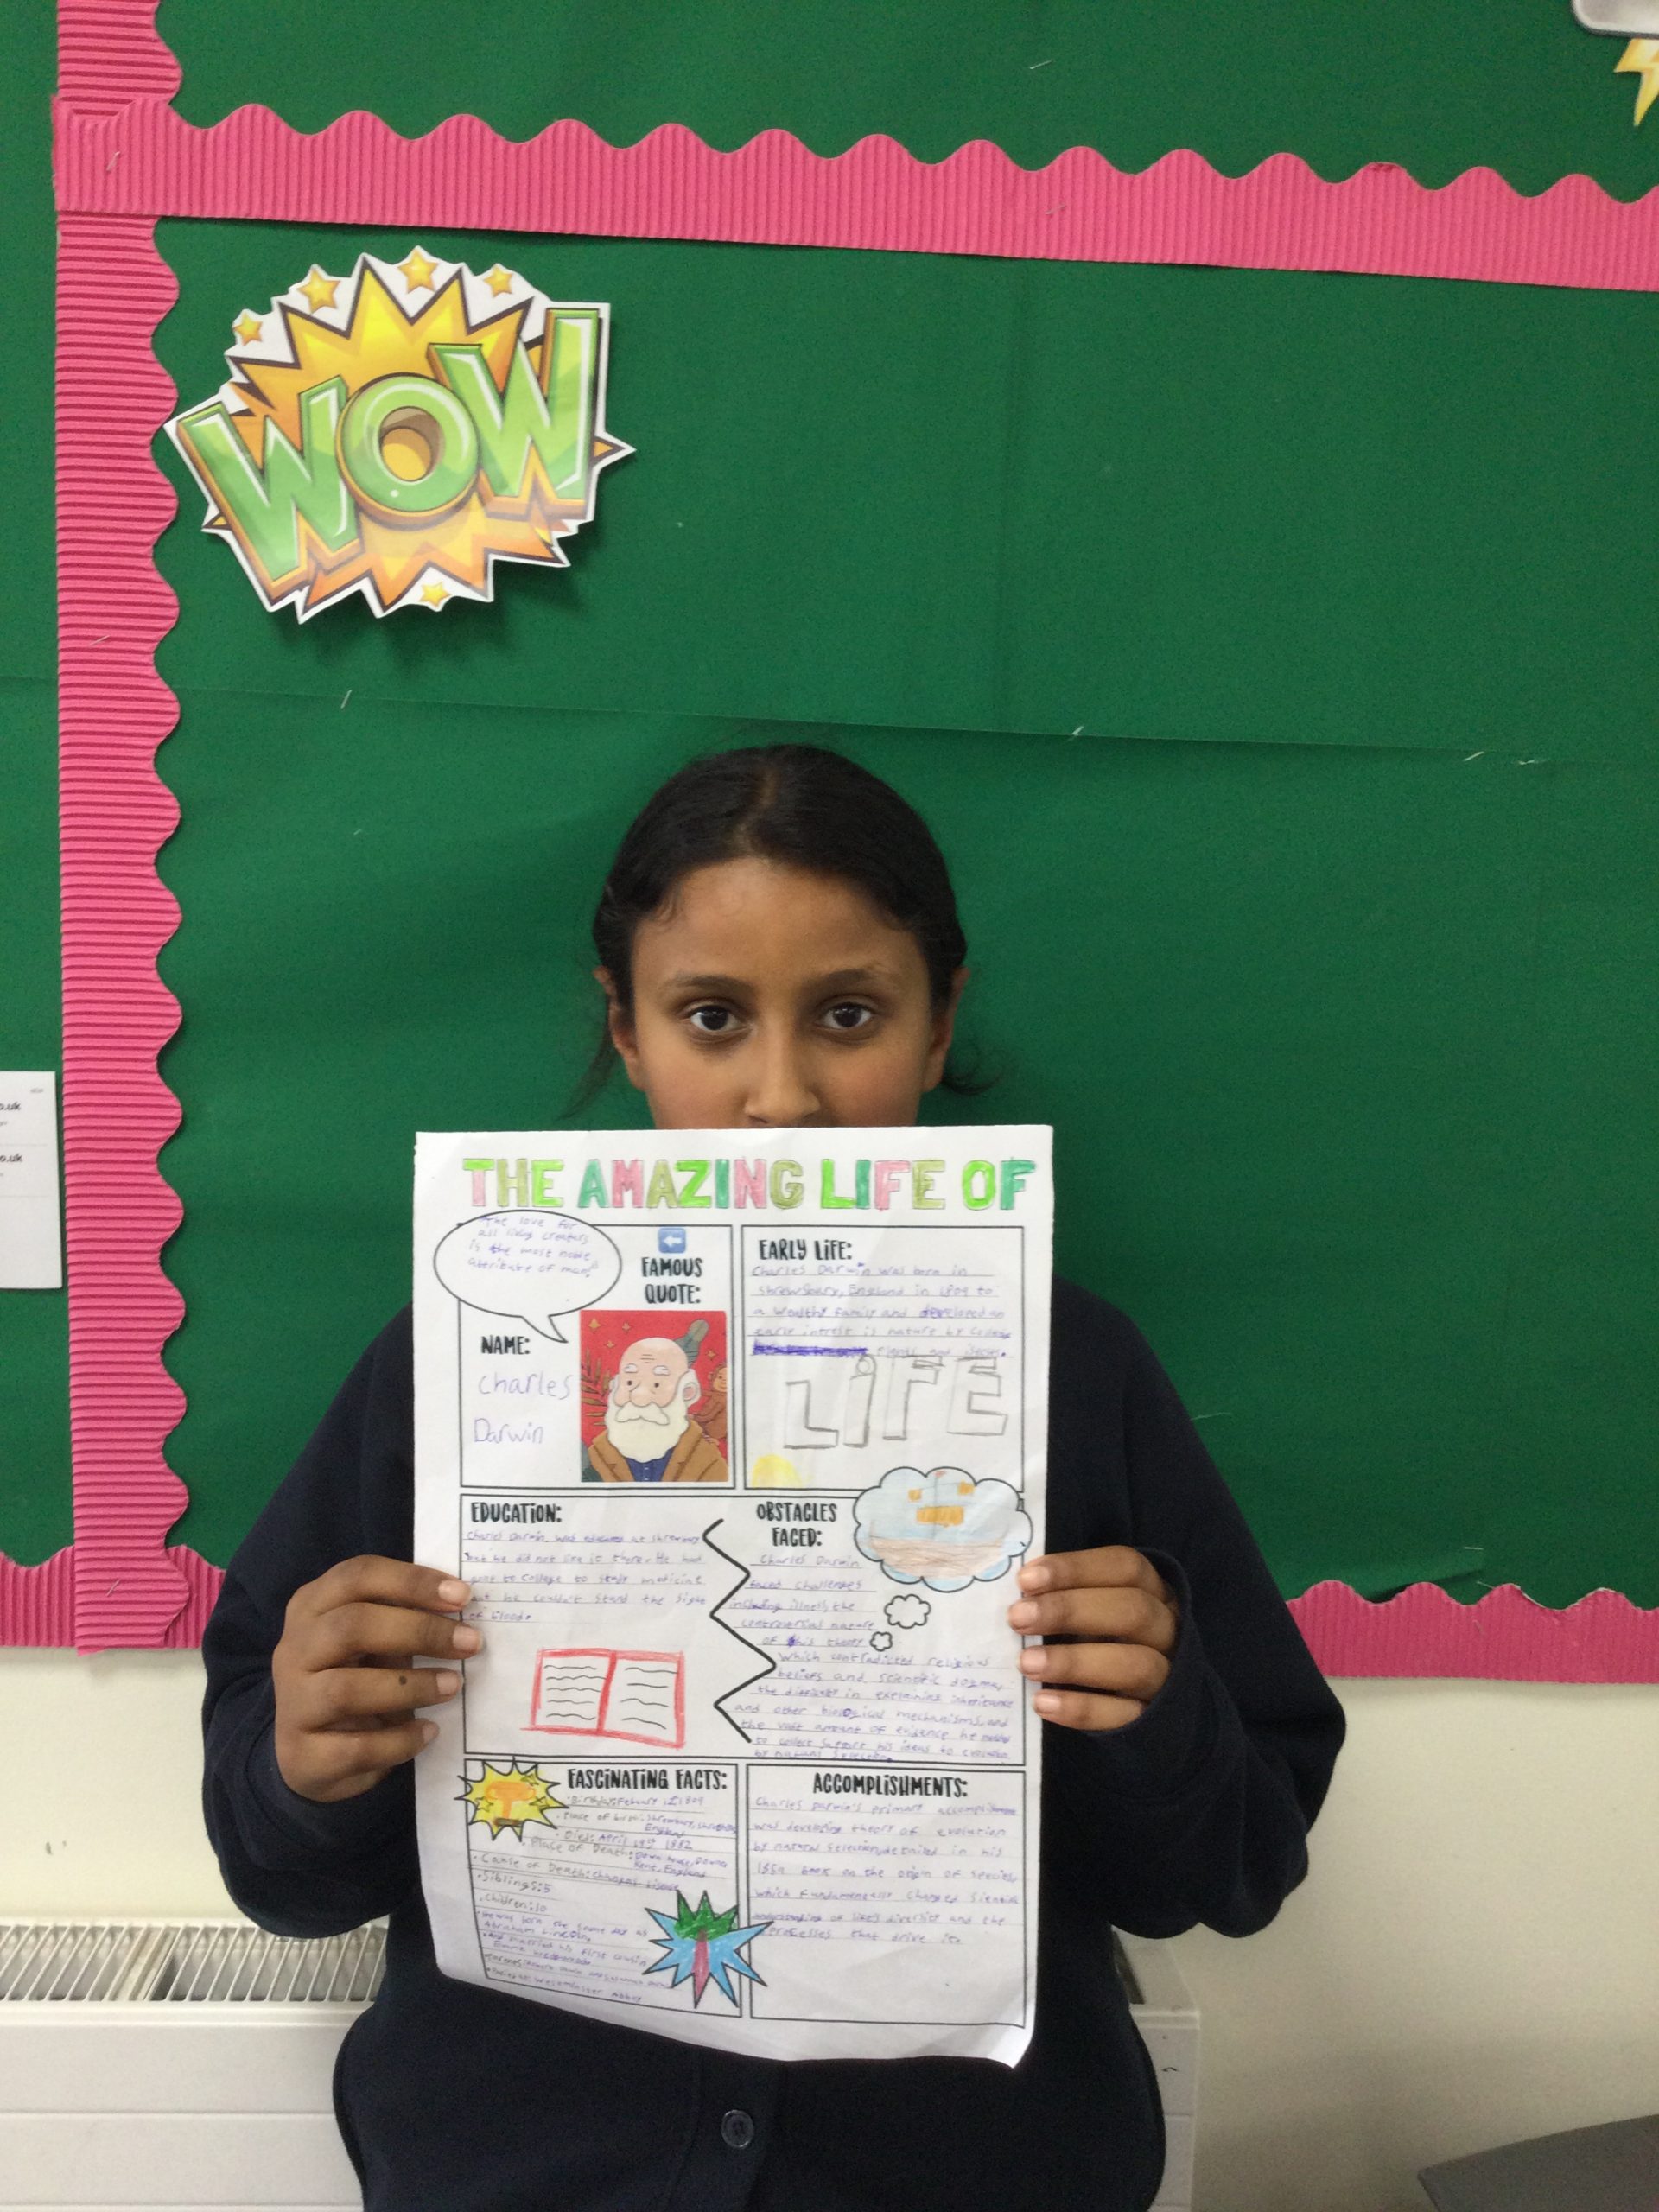 WOW
o.uk
o.uk
THE AMAZING LIFE OF
"The love for
all living creaturs
is the most noble
attribute of man."
FAMOUS
QUOTE:
NAME:
Charles
Darwin
EARLY LIFE:
Charles Darwin was born in
Shrewsbury, England in 1809 to
a wealthy family and developed an
early intrest is nature by
plants and
LIFE
EDUCATION:
Charles Darwin, was educated at Shrewsbury
but he did not like it there. He had
gont to College to study medicine
but he couldn't stand the sight
of blood.
OBSTACLES
FACED:
Charles Darwin
faced challenges
including illness, the
controversial nature
of his theory
which contradicted religious
beliefs and scientific dogma,
the difficulty in explaining inheritance
and other biological mechanisms, and
the vast amount of evidence he needed
to collect support his ideas to evolution
by natural selection.
FASCINATING FACTS:
1809
Place of birth: Shrewsbury,
England
Died: April 19th 1882
Place of Death: Down house, Downe
Kent, England
Cause of Death: disease
Siblings: 5
Children: 10
born the same day as
Abraham Lincoln.
married his first cousin
Emma
Abbey
ACCOMPLISHMENTS:
Charles Darwin's primary accomplishment
was developing theory of evolution
by natural selection, detailed in his
1859 book on the origin of species,
which fundamentally changed
understanding of life's diversity and the
processes that drive it.